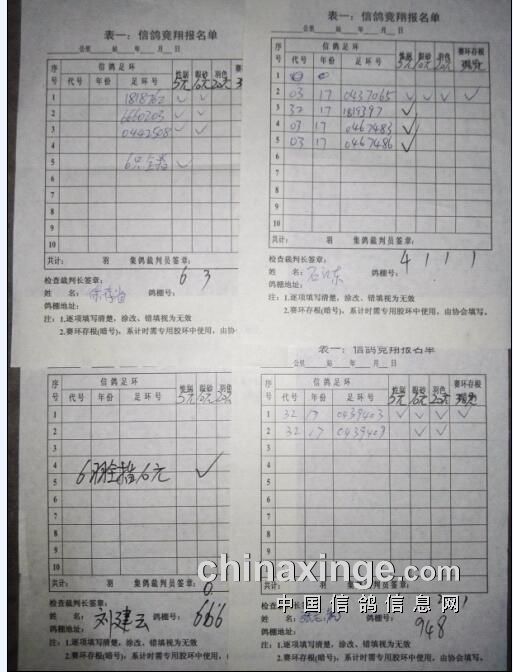 表一：信鸽竞翔报名单
公里 站 年 月 日
序号 信鸽足环 性别 眼砂 羽色
代号 年份 足环号 5元 10元 20元
1 1818762 ✓ ✓
2 6660203 ✓ ✓
3 0442508 ✓ ✓
4
5 ✓
6
7
8
9
10
共计： 羽 集鸽裁判员签章：
检查裁判长签章： 6 3
姓 名： 鸽棚号：
鸽棚地址：
注：1.逐项填写清楚，涂改、错填视为无效
2.赛环存根(暗号)，系计时需专用胶环中使用，由协
表一：信鸽竞翔报名单
公里 站 年 月 日
序号 信鸽足环 性别 眼砂 羽色 赛环存根
代号 年份 足环号 5元 10元 20元
1
2 03 17 0437065 ✓ ✓ ✓ ✓
3 32 17 1819397 ✓
4 03 17 0467483 ✓
5 03 17 0467486 ✓
6
7
8
9
10
共计： 羽 集鸽裁判员签章：
检查裁判长签章： 4 1 1 1
姓 名： 鸽棚号：
鸽棚地址：
注：1.逐项填写清楚，涂改、错填视为无效
2.赛环存根(暗号)，系计时需专用胶环中使用，由协会填写。
序号 信鸽足环 性别 眼砂 羽色
代号 年份 足环号 5元 10元 20元
1
2
3
4 ✓
5
6
7
8
9
10
共计： 羽 集鸽裁判员签章：
检查裁判长签章：
姓 名：刘建云 鸽棚号：666
鸽棚地址：
注：1.逐项填写清楚，涂改、错填视为无效
2.赛环存根(暗号)，系计时需专用胶环中使用，由协
表一：信鸽竞翔报名单
公里 站 年 月 日
序号 信鸽足环 性别 眼砂 羽色 赛环存根
代号 年份 足环号 5元 10元 20元
1 32 17 0439403 ✓ ✓ ✓ ✓
2 32 17 0439409 ✓ ✓
3
4
5
6
7
8
9
共计：
检查裁判长签章：
姓 名： 鸽棚号：948
鸽棚地址：
注：1.逐项填写清楚，涂改、错填视为无效
2.赛环存根(暗号)，系计时需专用胶环中使用，由协会填写。
chinaxinge.com
中国信鸽信息网